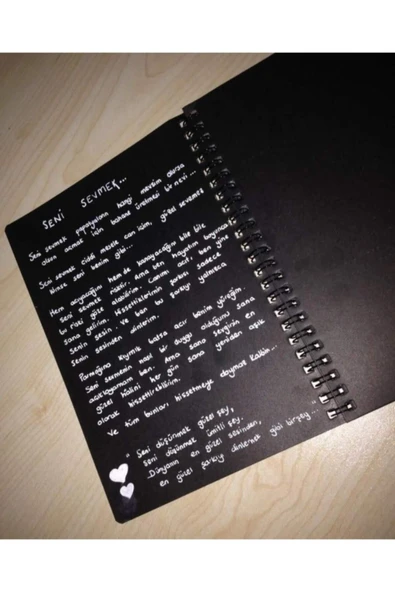 SENİ SEVMEK...
Seni sevmek papatyaların hangi mevsim olursa
olsun açmak için bahane üretmesi bir nevi...
Biraz seni benim gibi...
Seni sevmek ciddi mesele can içim, güzel sevmek
Hem acıyacağını hem de kanayacağını bile bile
seni sevmek risktir. Ama ben hayatım boyunca
bu riski göze alabilirim. Canım acır, ben yine
sana gelirim. Hissettiklerinin şarkısı sadece
senin sesin. Ve ben bu şarkıyı yalnızca
senin sesinden dinlerim.
Parmağına kıymık batsa acır benim yüreğim.
Seni sevmenin nasıl bir duygu olduğunu sana
açıklayamam ben. Ama sana sevginin en
güzel halini her gün sana yeniden aşık
olarak hissettirebilirim.
Ve tüm bunları hissetmeye doymaz kalbin...
"Seni düşünmek güzel şey,
seni düşünmek ümitli şey.
Dünyanın en güzel sesinden,
en güzel şarkıyı dinlemek gibi birşey..."